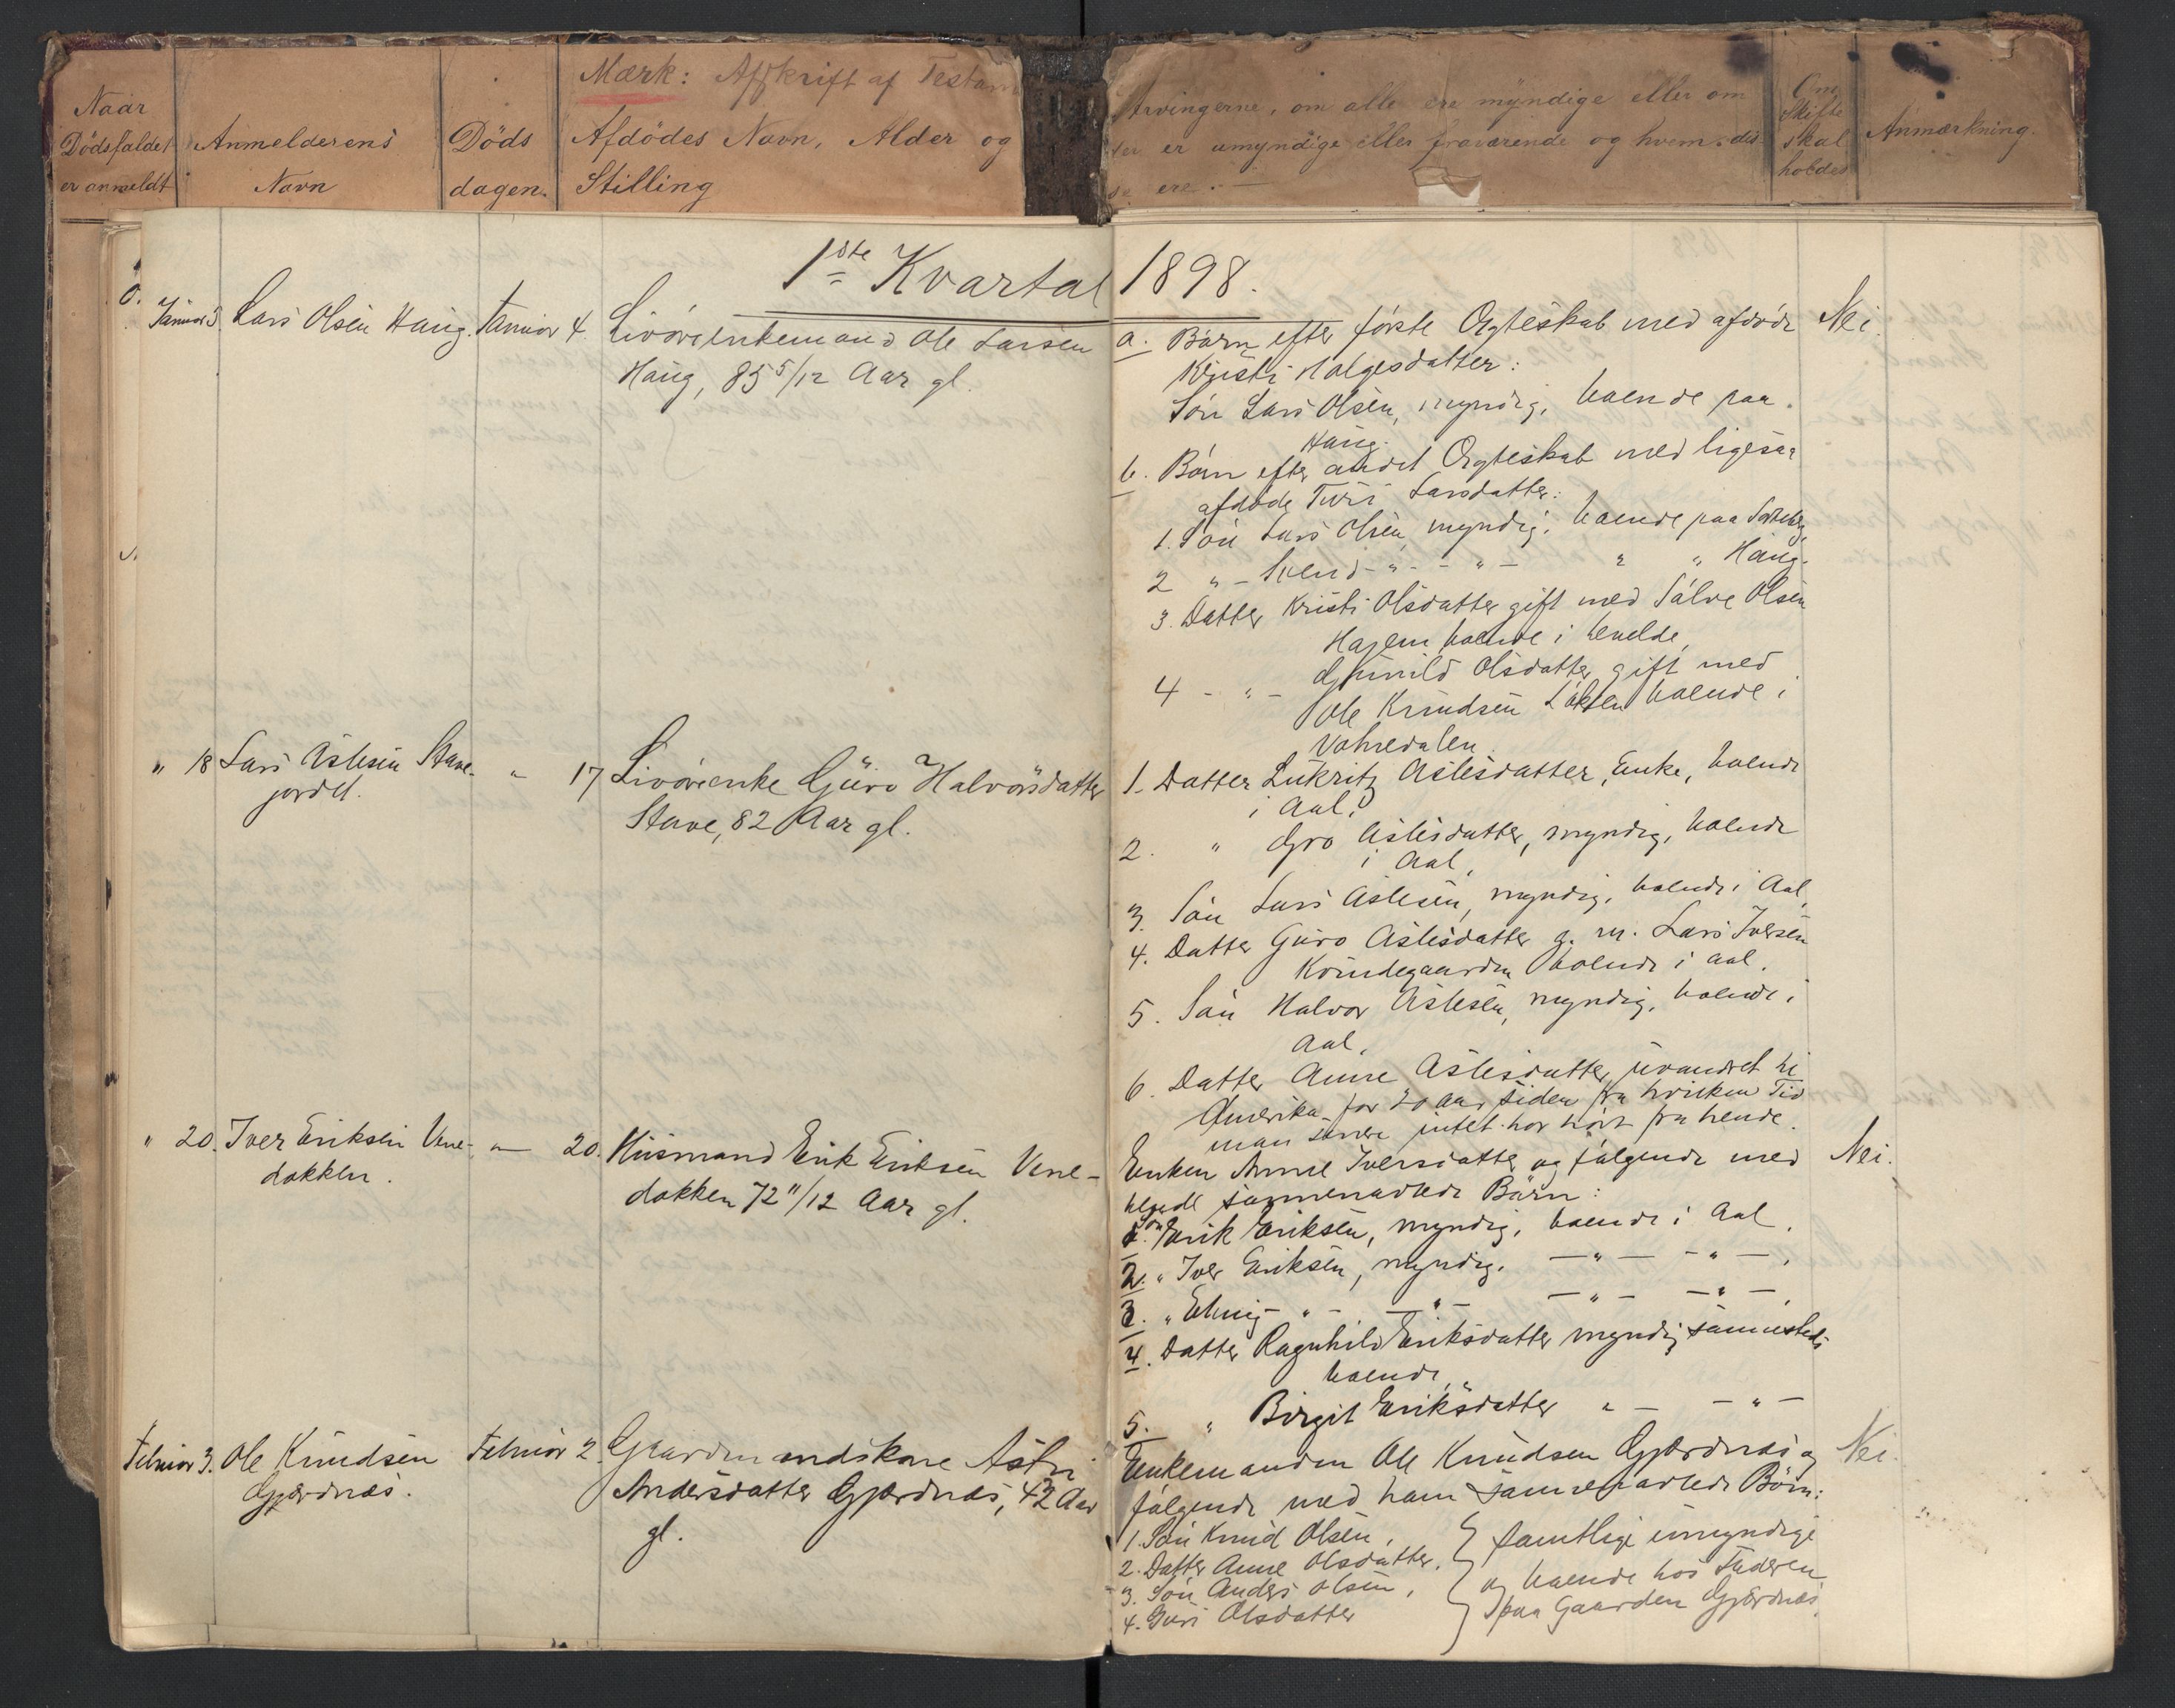 Mærk: Afskrift af
Naar
Dödsfaldet
er anmeldt
Anmelderens
Navn
Döds
dagen.
Afdödes Navn, Alder og
Stilling
Arvingerne, om alle ere myndige eller om
er umyndige eller fraværende og hvem dis
se ere. —
Om
Skifte
skal
holdes
Anmærkning.
1ste Kvartal 1898.
Januar 3. Lars Olsen Haug. Januar 4. Livöreenkemand Ole Larsen
Haug, 85 5/12 Aar gl.
a. Börn efter förste Ægteskab med afdöde
Kristi Holgesdatter:
Sön Lars Olsen, myndig, boende paa
Haug.
b. Börn efter andet Ægteskab med ligesaa
afdöde Turi Larsdatter:
1. Sön Lars Olsen, myndig, boende paa
2 " - Svend - " - - " - " " Haug.
3. Datter Kristi Olsdatter gift med Sálve Olsen
boende i
4 - " - Gunild Olsdatter gift med
Ole Knudsen boende i
Nei.
" 18 Lars Aslesen Stave-
jordet.
" 17 Livöreenke Guro Halvorsdatter
Stave, 82 Aar gl.
1. Datter Aslesdatter, Enke, boende
i Aal.
2. " Gro Aslesdatter, myndig, boende
i Aal,
3. Sön Lars Aslesen, myndig, boende i Aal,
4. Datter Guro Aslesdatter g. m. Lars Iversen
Kvindegaarden boende i Aal.
5. Sön Halvor Aslesen, myndig, boende i
Aal,
6. Datter Anne Aslesdatter, udvandret til
Amerika for 20 Aar siden fra hvilken Tid
man senere intet har hört fra hende.
" 20. Iver Eriksen Vene-
dokken.
" — 20. Husmand Erik Eriksen Vene-
dokken 72 11/12 Aar gl.
Enken Anne Iversdatter og fölgende med
hende sammenavlede Börn:
1. Sön Erik Eriksen, myndig, boende i Aal,
2. " Iver Eriksen, myndig, — " — - " —,
3. " - " - — " - — " - — " —,
4. Datter Ragnhild Eriksdatter myndig sammesteds
boende,
5. " Birgit Eriksdatter " - - " -
Nei.
Februar 3. Ole Knudsen
Gjerdnæs.
Februar 2. Gaardmandskone Astri
Andersdatter Gjerdnæs, 42 Aar
gl.
Enkemanden Ole Knudsen Gjerdnæs og
fölgende med ham sammenavlede Börn:
1. Sön Knud Olsen,
2. Datter Anne Olsdatter,
3. Sön Anders Olsen,
4. Guri Olsdatter
samtlige umyndige
og boende hos Faderen
paa Gaarden Gjerdnæs.
Nei.